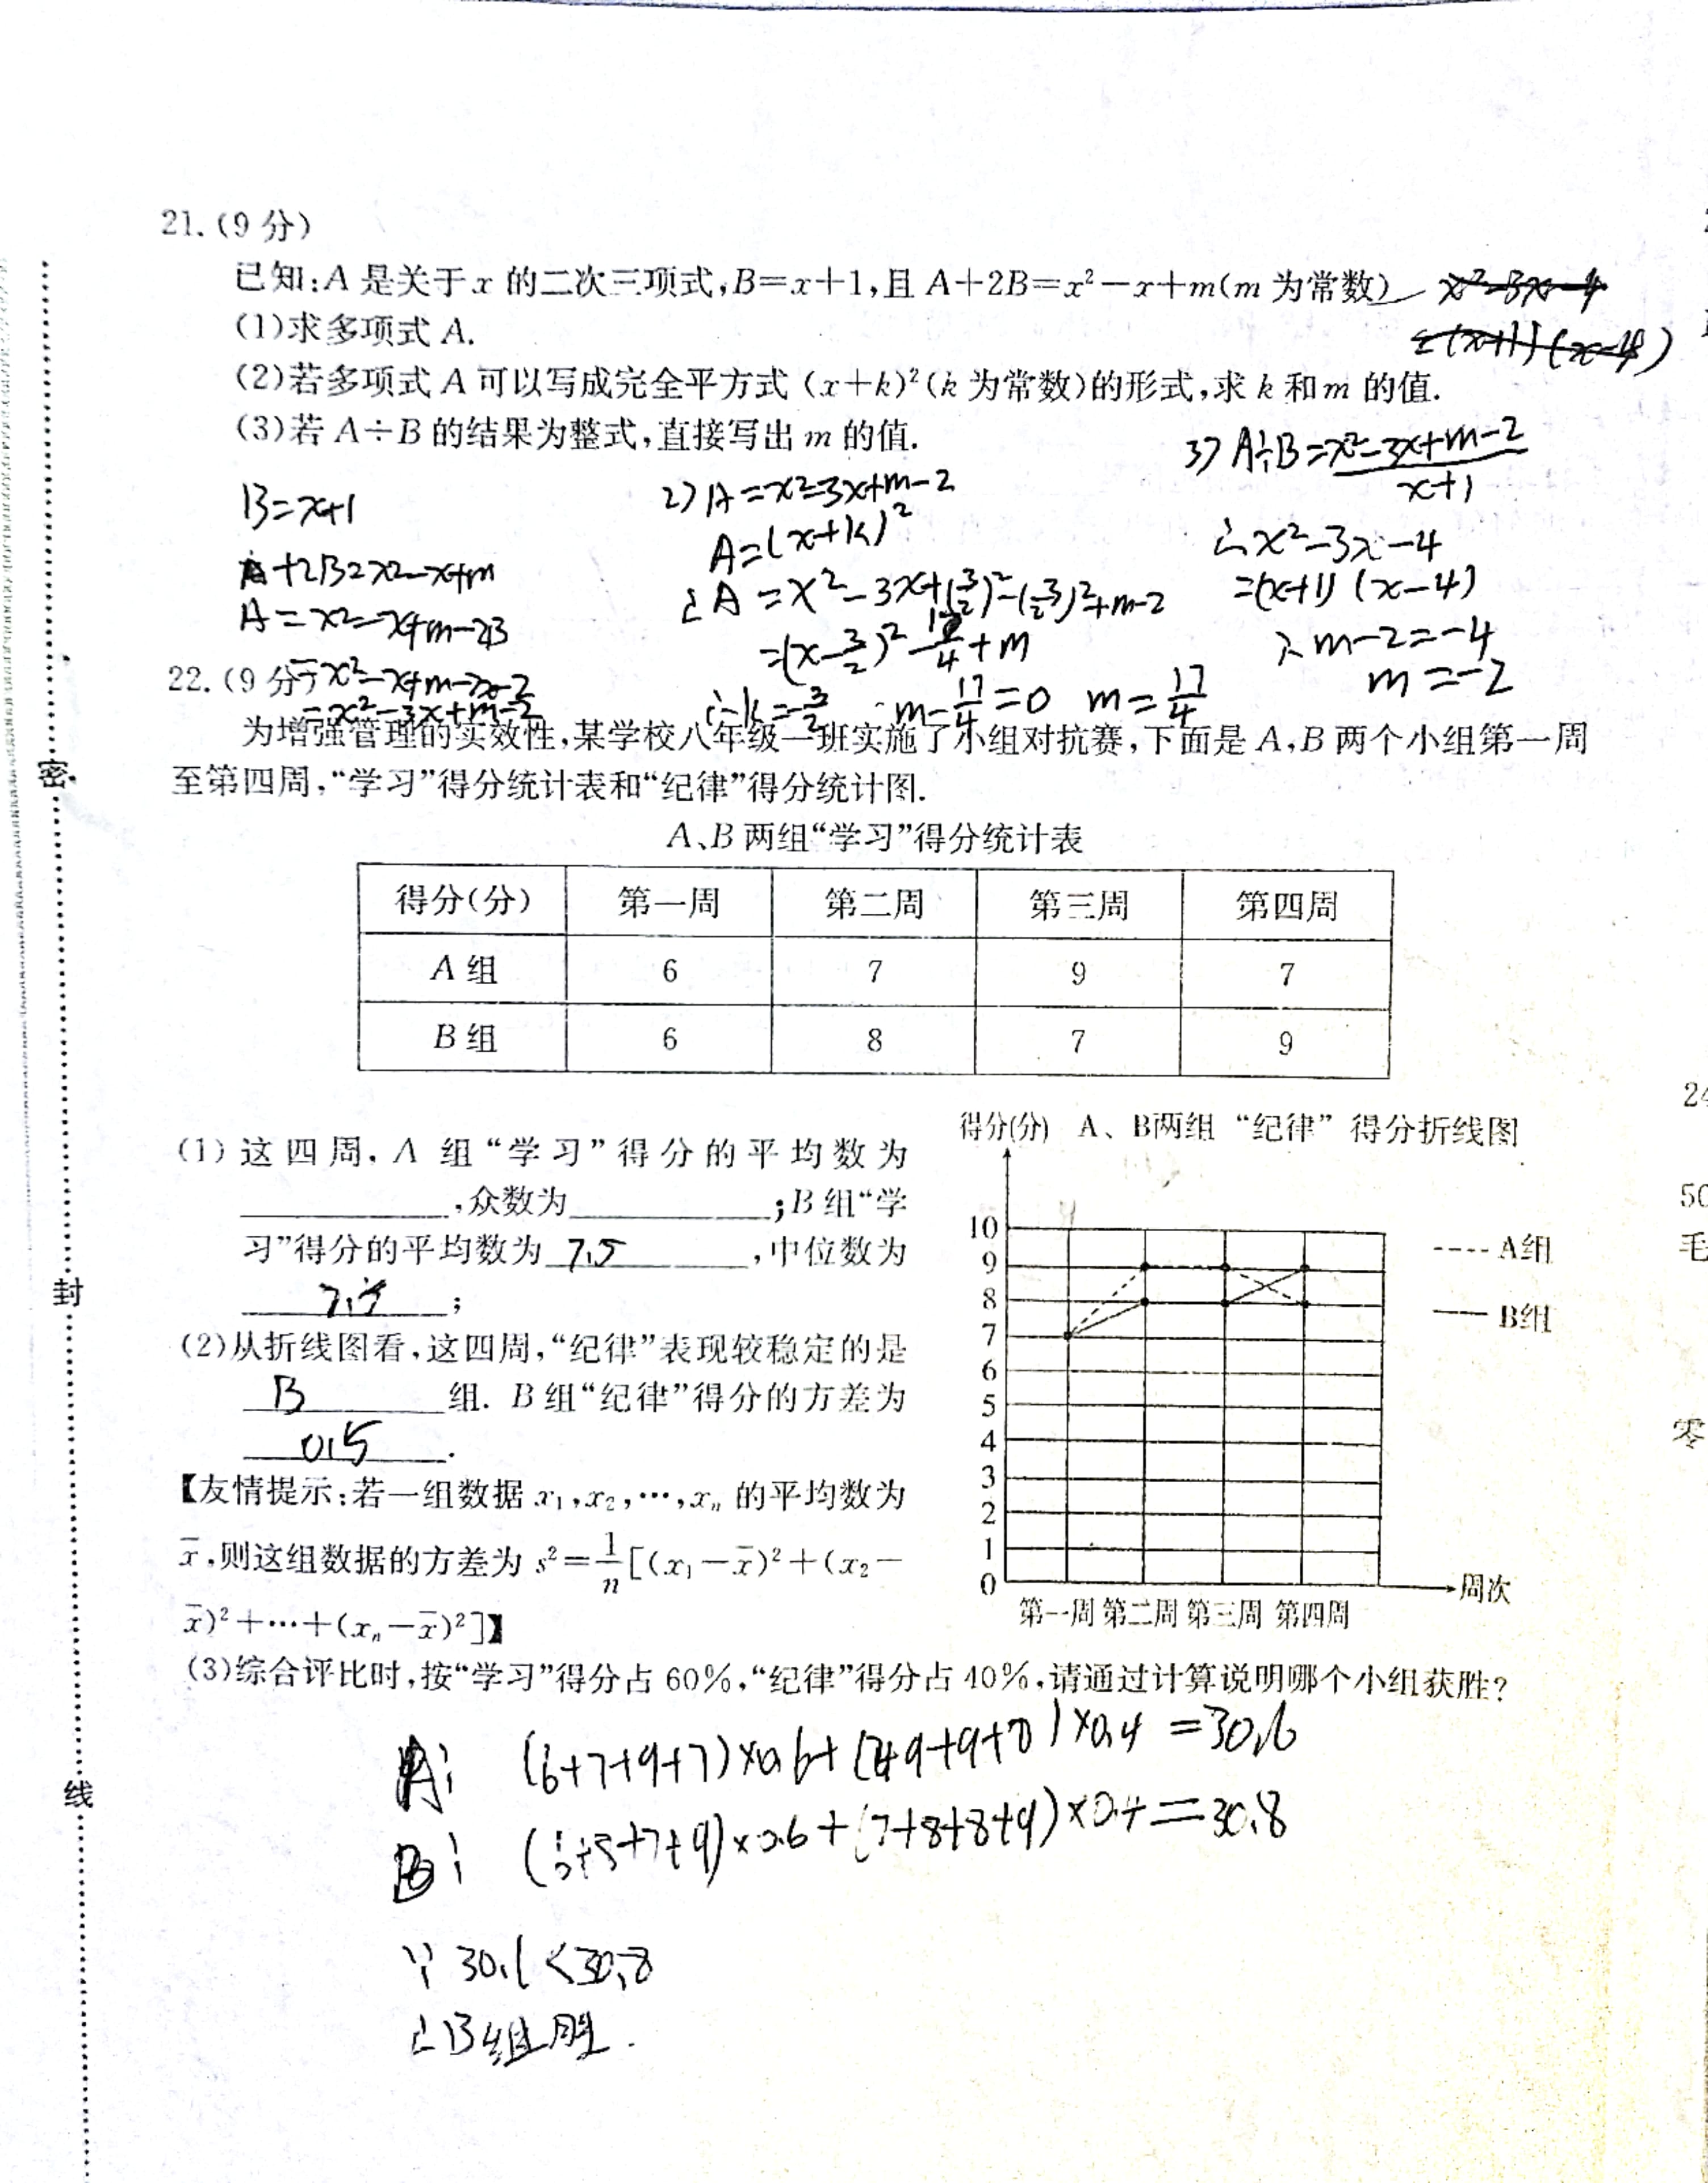 21.(9 分)
已知:A 是关于 x 的二次三项式,B=x+1,且 A+2B=x²-x+m(m 为常数)
x²-3x-4
=(x+1)(x-4)
(1)求多项式 A.
(2)若多项式 A 可以写成完全平方式 (x+k)²(k 为常数)的形式,求 k 和 m 的值.
(3)若 A÷B 的结果为整式,直接写出 m 的值.
B=x+1
A+2B=x²-x+m
A=x²-x+m-2B
=x²-x+m-2x-2
=x²-3x+m-2
2) A=x²-3x+m-2
A=(x+k)²
∴A=x²-3x+(3/2)²-(3/2)²+m-2
=(x-3/2)²-17/4+m
∴k=-3/2 m-17/4=0 m=17/4
3) A÷B=(x²-3x+m-2)/(x+1)
∴x²-3x-4
=(x+1)(x-4)
∴m-2=-4
m=-2
22.(9 分)
为增强管理的实效性,某学校八年级一班实施了小组对抗赛,下面是 A,B 两个小组第一周
至第四周,“学习”得分统计表和“纪律”得分统计图.
A、B 两组“学习”得分统计表
得分(分) 第一周 第二周 第三周 第四周
A 组 6 7 9 7
B 组 6 8 7 9
(1)这四周,A 组“学习”得分的平均数为
,众数为 ;B 组“学
习”得分的平均数为 7.5 ,中位数为
7.5 ;
(2)从折线图看,这四周,“纪律”表现较稳定的是
B 组. B 组“纪律”得分的方差为
0.5 .
【友情提示:若一组数据 x₁,x₂,…,xₙ 的平均数为
x̄,则这组数据的方差为 s²=1/n[(x₁-x̄)²+(x₂-
x̄)²+…+(xₙ-x̄)²]】
得分(分) A、B两组“纪律”得分折线图
10
9
8
7
6
5
4
3
2
1
0
A组
B组
周次
第一周 第二周 第三周 第四周
(3)综合评比时,按“学习”得分占 60%,“纪律”得分占 40%,请通过计算说明哪个小组获胜?
A: (6+7+9+7)×0.6+(7+9+9+8)×0.4=30.6
B: (6+8+7+9)×0.6+(7+8+8+9)×0.4=30.8
∵ 30.6<30.8
∴B组胜.
密
封
线
24
50
毛
零